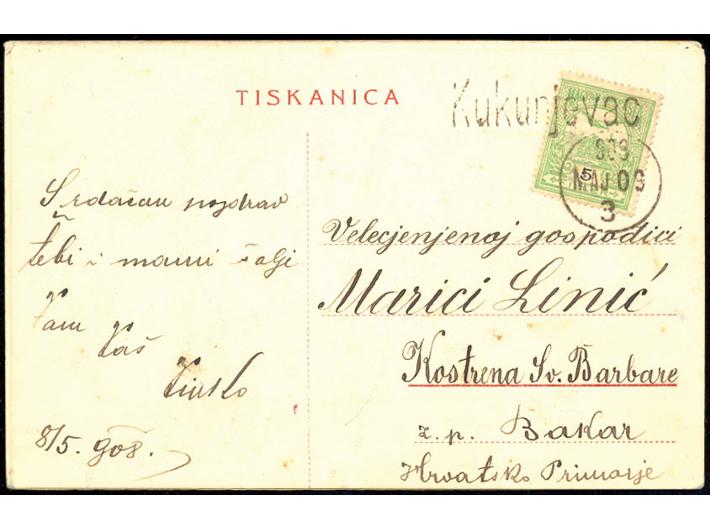 TISKANICA
Kukunjevac
MAJ 09
3
5
Srdačan pozdrav
tebi i mami šalje
Vam Vaš
8/5. 908.
Velecjenjenoj gospodici
Marici Linić
Kostrena Sv. Barbare
z. p. Bakar
Hrvatsko Primorje